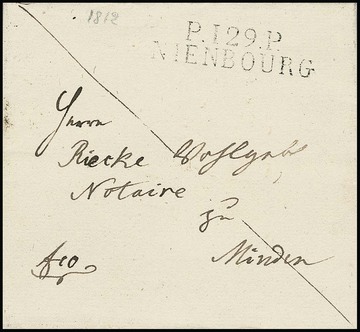 1812
P.129.P.
NIENBOURG
Herrn
Riecke Wohlgeb
Notaire
zu
Minden
fco